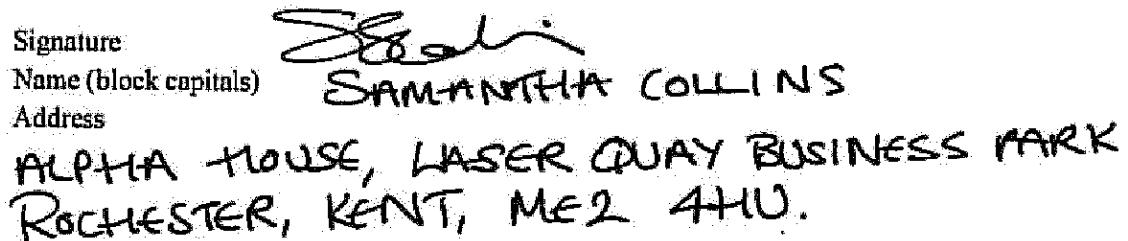 Signature
Name (block capitals) SAMANTHA COLLINS
Address
ALPHA HOUSE, LASER QUAY BUSINESS PARK
ROCHESTER, KENT, ME2 4HU.